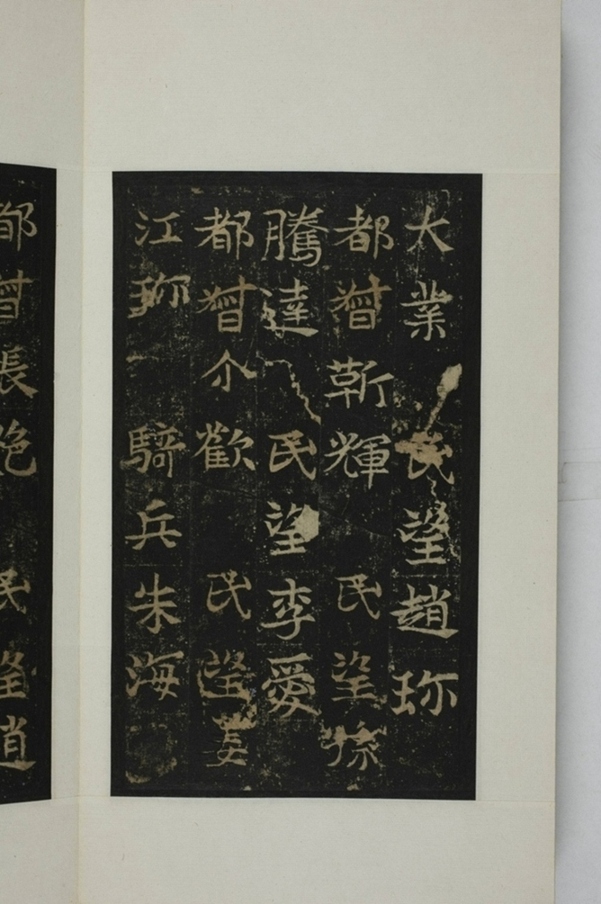 大業 民望趙珎
都督靳輝 民望孫
騰達 民望李愛
都督尒歡 民望姜
江珎 騎兵朱海
都督張 民望趙